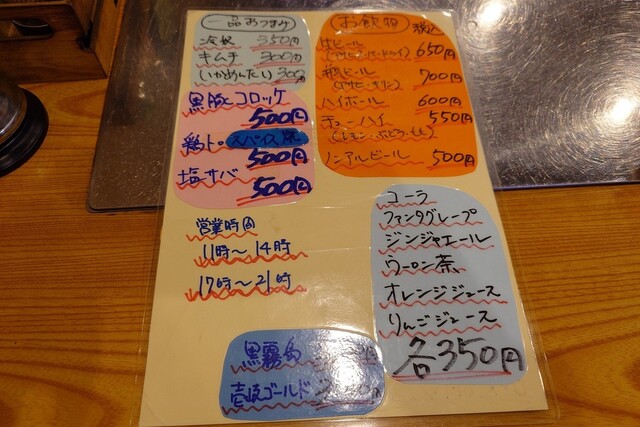 一品おつまみ
冷奴 350円
キムチ 300円
いかめんたい 300円
黒豚コロッケ
500円
鶏トロスパイス焼
500円
塩サバ
500円
営業時間
11時〜14時
17時〜21時
お飲物 税込
生ビール 650円
瓶ビール 700円
ハイボール 600円
チューハイ 550円
ノンアルビール 500円
コーラ
ファンタグレープ
ジンジャエール
ウーロン茶
オレンジジュース
りんごジュース
各350円
黒霧島
壱岐ゴールド